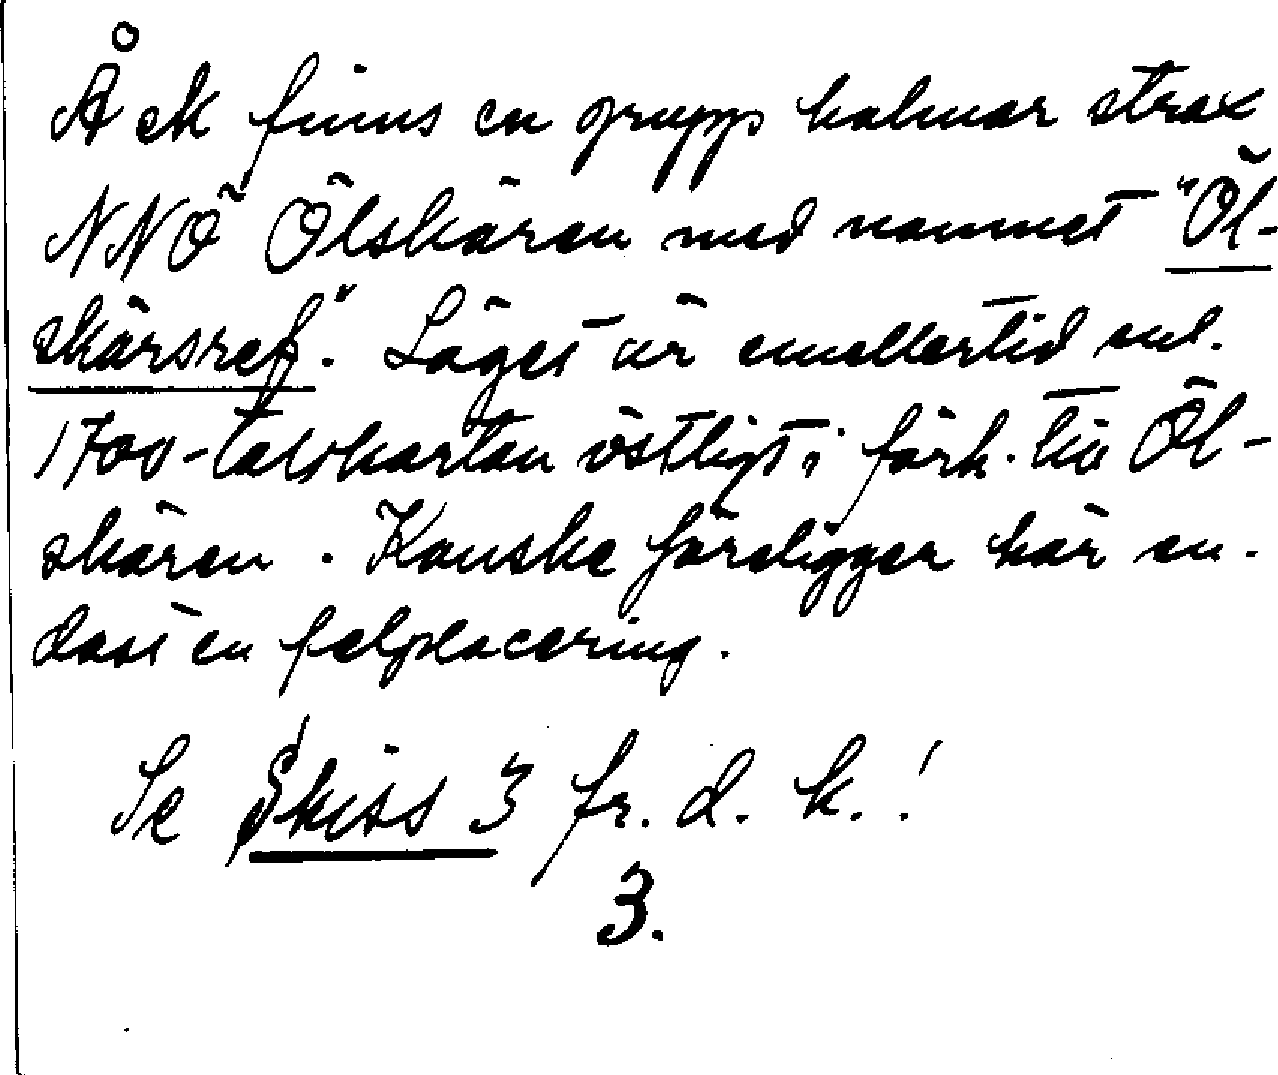 Å ek finns en grupp holmar strax
NNÖ Ölskären med namnet "Öl-
skärsref". Läget är emellertid enl.
1700-talskartan östligt i förh. till Öl-
skären. Kanske föreligger här en-
dast en felplacering.
Se Skiss 3 fr. d. k.!
3.